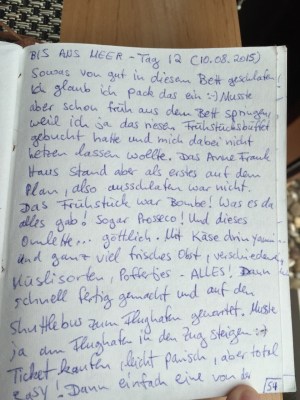 BIS ANS MEER - Tag 12 (10.08.2015)
Sowas von gut in diesem Bett geschlafen!
Ich glaub ich pack das ein :-) Musste
aber schon früh aus dem Bett springen,
weil ich ja das riesen Frühstücksbüffet
gebucht hatte und mich dabei nicht
hetzen lassen wollte. Das Anne Frank
Haus stand aber als erstes auf dem
Plan, also ausschlafen war nicht.
Das Frühstück war Bombe! Was es da
alles gab! Sogar Prosseco! Und dieses
Omlette... göttlich. Mit Käse drin
und ganz viel frisches Obst, verschiedene
Müslisorten, Poffertjes - ALLES! Dann
schnell fertig gemacht und auf den
Shuttlebus zum Flughafen gewartet. Musste
ja am Flughafen in den Zug steigen :-)
Ticket kaufen, leicht panisch, aber total
easy! Dann einfach eine von den
54